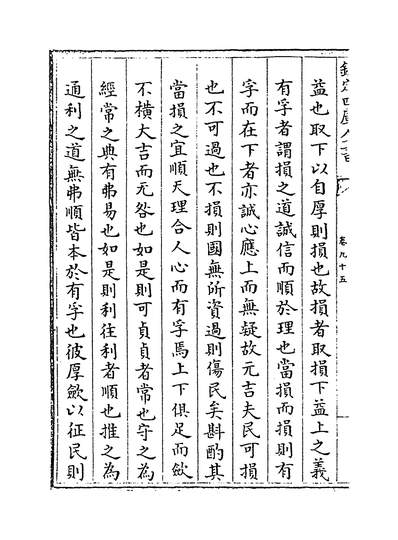 欽定四庫全書
卷九十五
益也取下以自厚則損也故損者取損下益上之義
有孚者謂損之道誠信而順於理也當損而損則有
孚而在下者亦誠心應上而無疑故元吉夫民可損
也不可過也不損則國無所資過則傷民矣斟酌其
當損之宜順天理合人心而有孚焉上下俱足而斂
不橫大吉而无咎也如是則可貞貞者常也守之為
經常之典有弗易也如是則利往利者順也推之為
通利之道無弗順皆本於有孚也彼厚歛以征民則